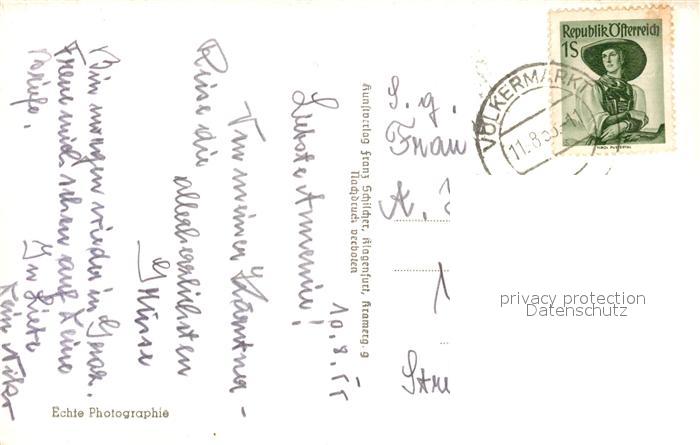 10.8.55
Liebste Annemie!
Von meiner Kärntner-
Reise die
allerherzlichsten
Grüsse
Bin morgen wieder in Graz.
Freue mich schon auf Deine
Briefe.
In Liebe
Dein
Echte Photographie
Kunstverlag Franz Schilcher, Klagenfurt, Kramerg. 9
Nachdruck verboten
S. g.
Frau
A.
Republik Österreich
1S
TIROL PUSTERTAL
VÖLKERMARKT
11.8.55-11
privacy protection
Datenschutz